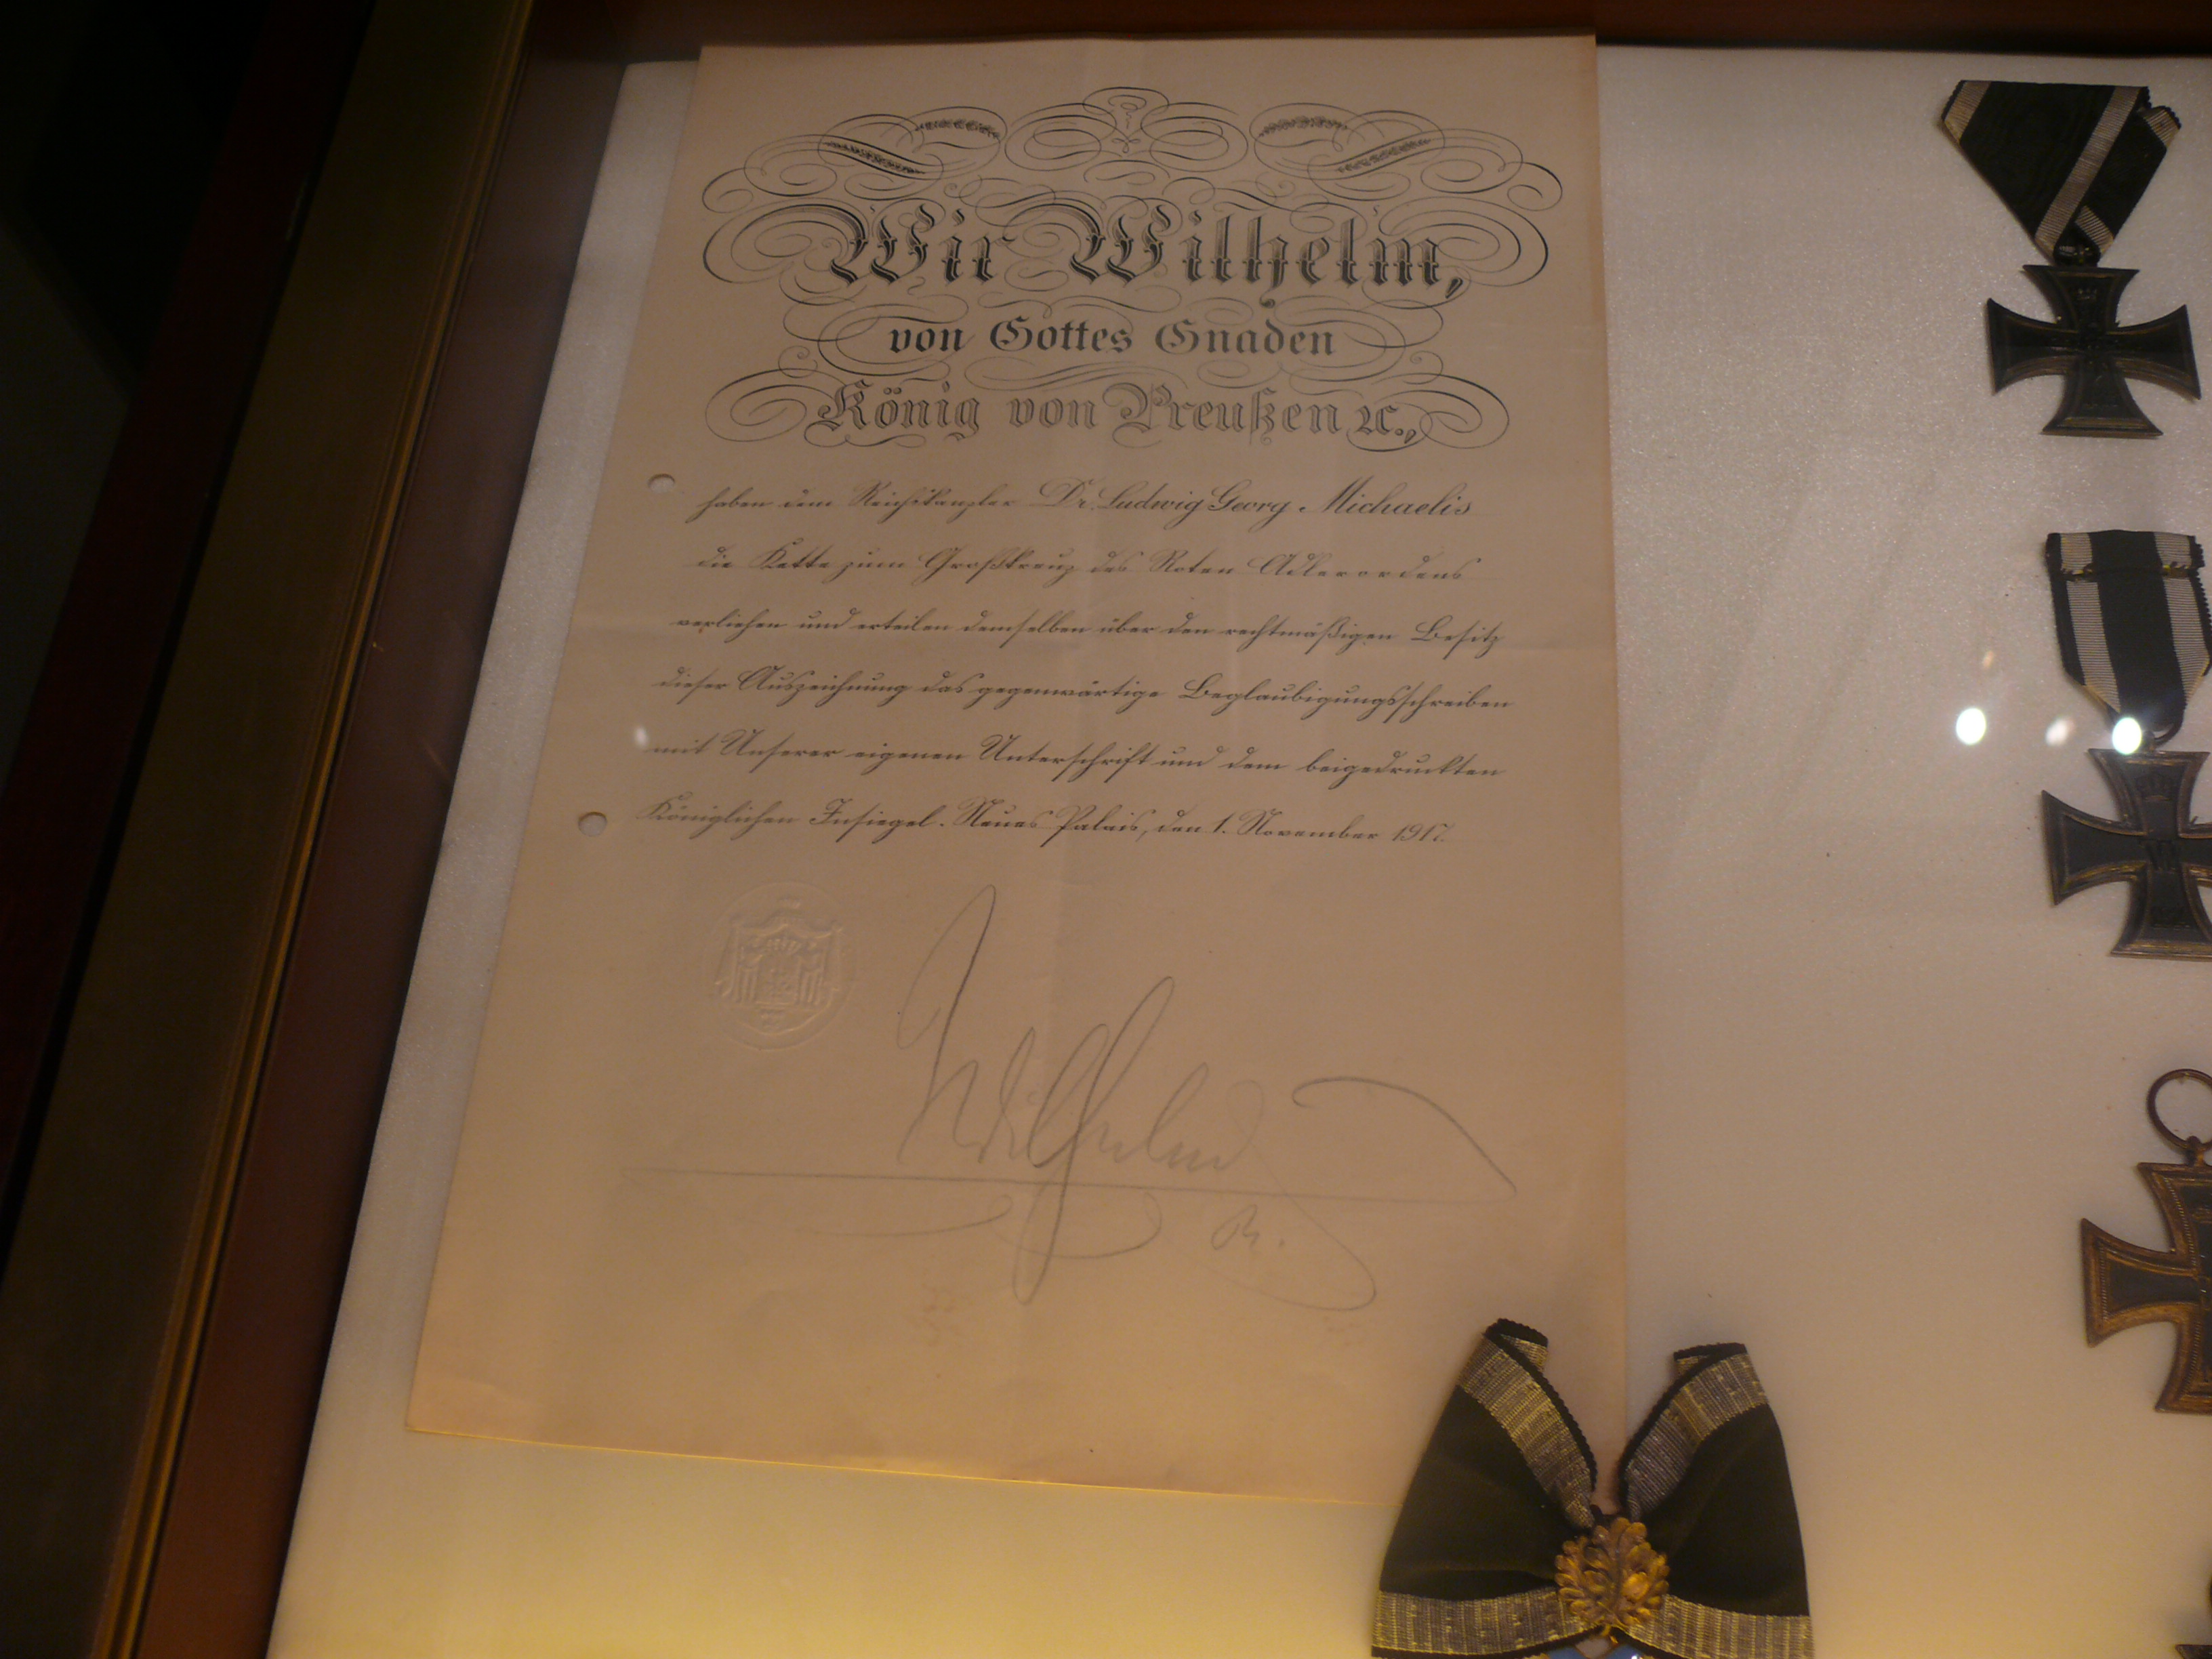 Wir Wilhelm,
von Gottes Gnaden
König von Preußen ꝛc.,
haben dem Reichskanzler Dr. Ludwig Georg Michaelis
die Kette zum Großkreuz des Roten Adlerordens
verliehen und erteilen demselben über den rechtmäßigen Besitz
dieser Auszeichnung das gegenwärtige Beglaubigungsschreiben
mit Unserer eigenen Unterschrift und dem beigedruckten
Königlichen Insiegel. Neues Palais, den 1. November 1917.
Wilhelm
R.